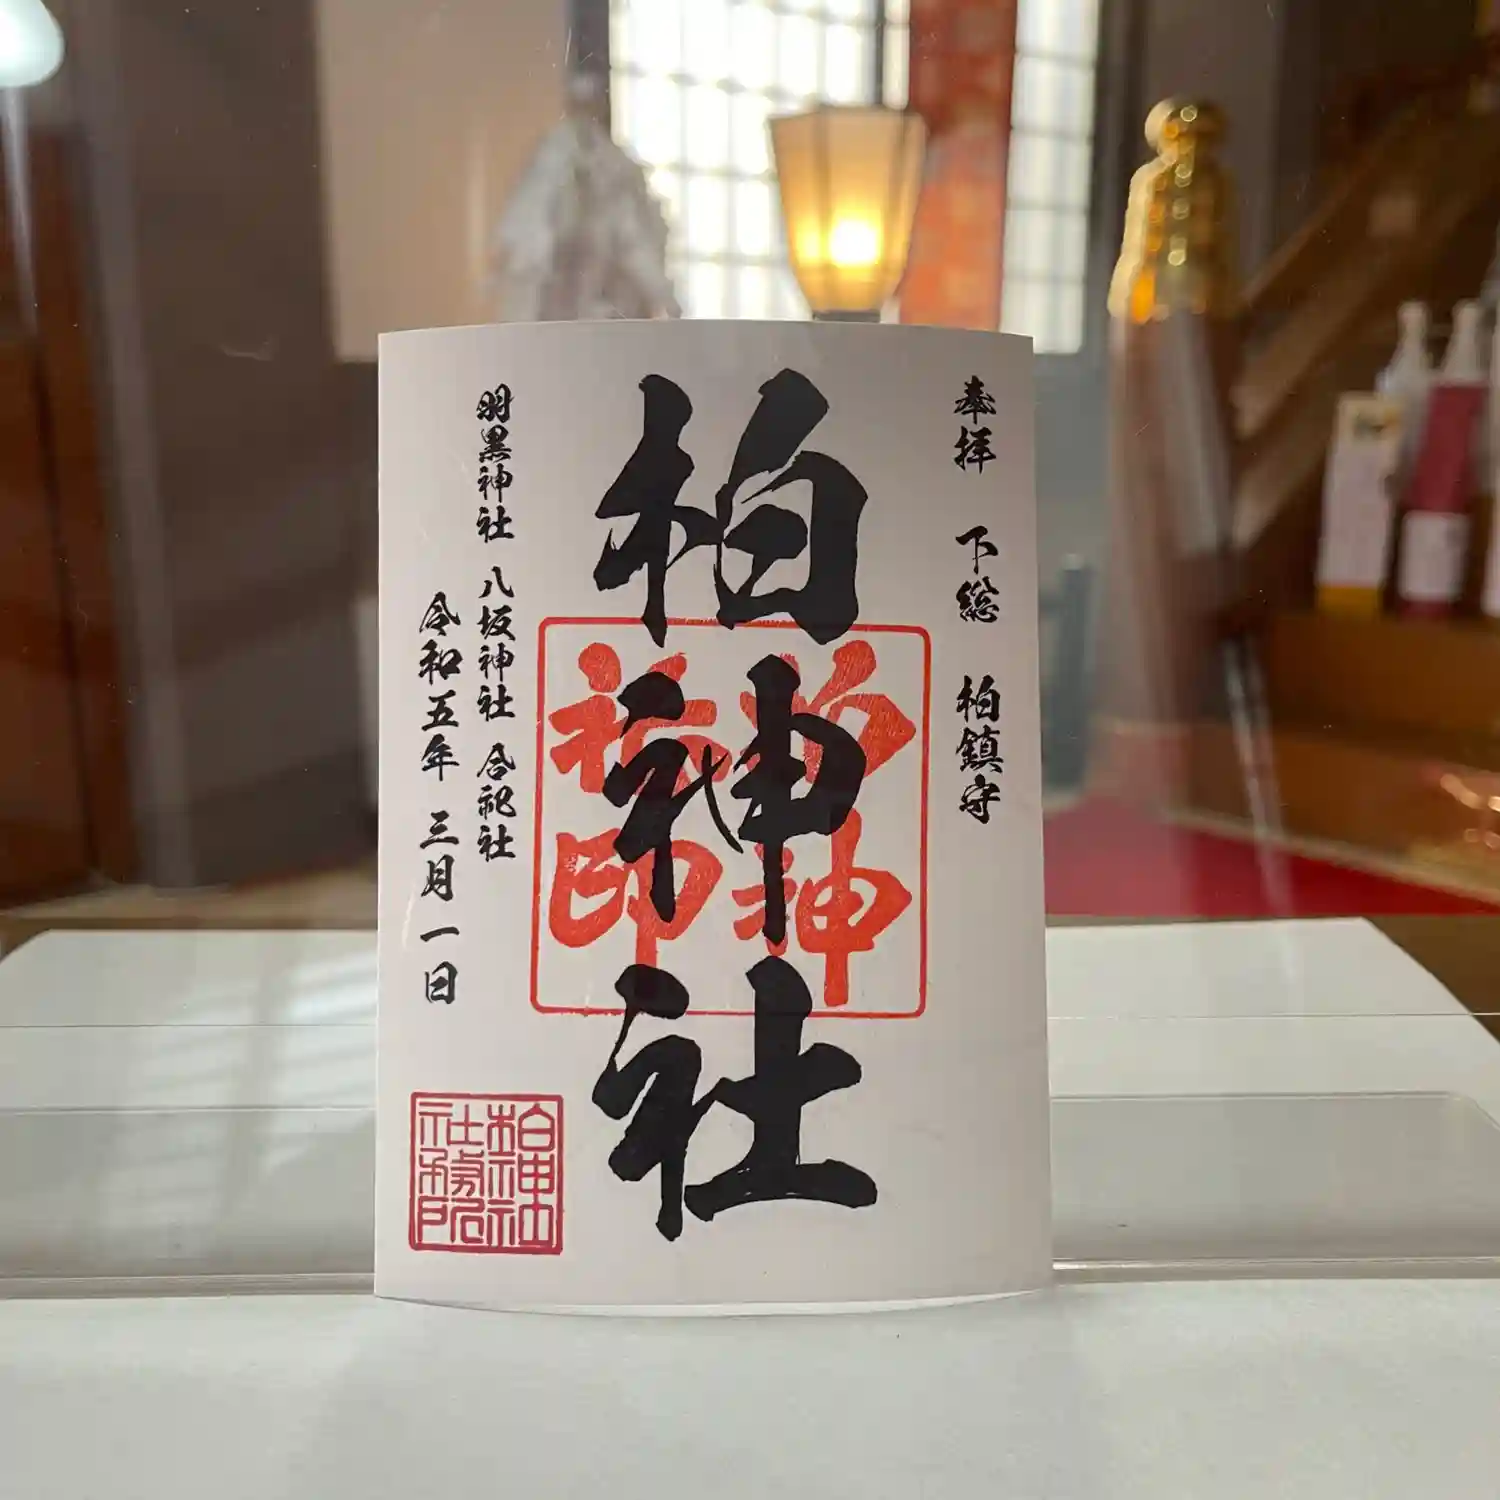 奉拝　下総　柏鎮守
柏神社
柏神社印
羽黒神社　八坂神社　合祀社
令和五年　三月一日
柏神社社務所